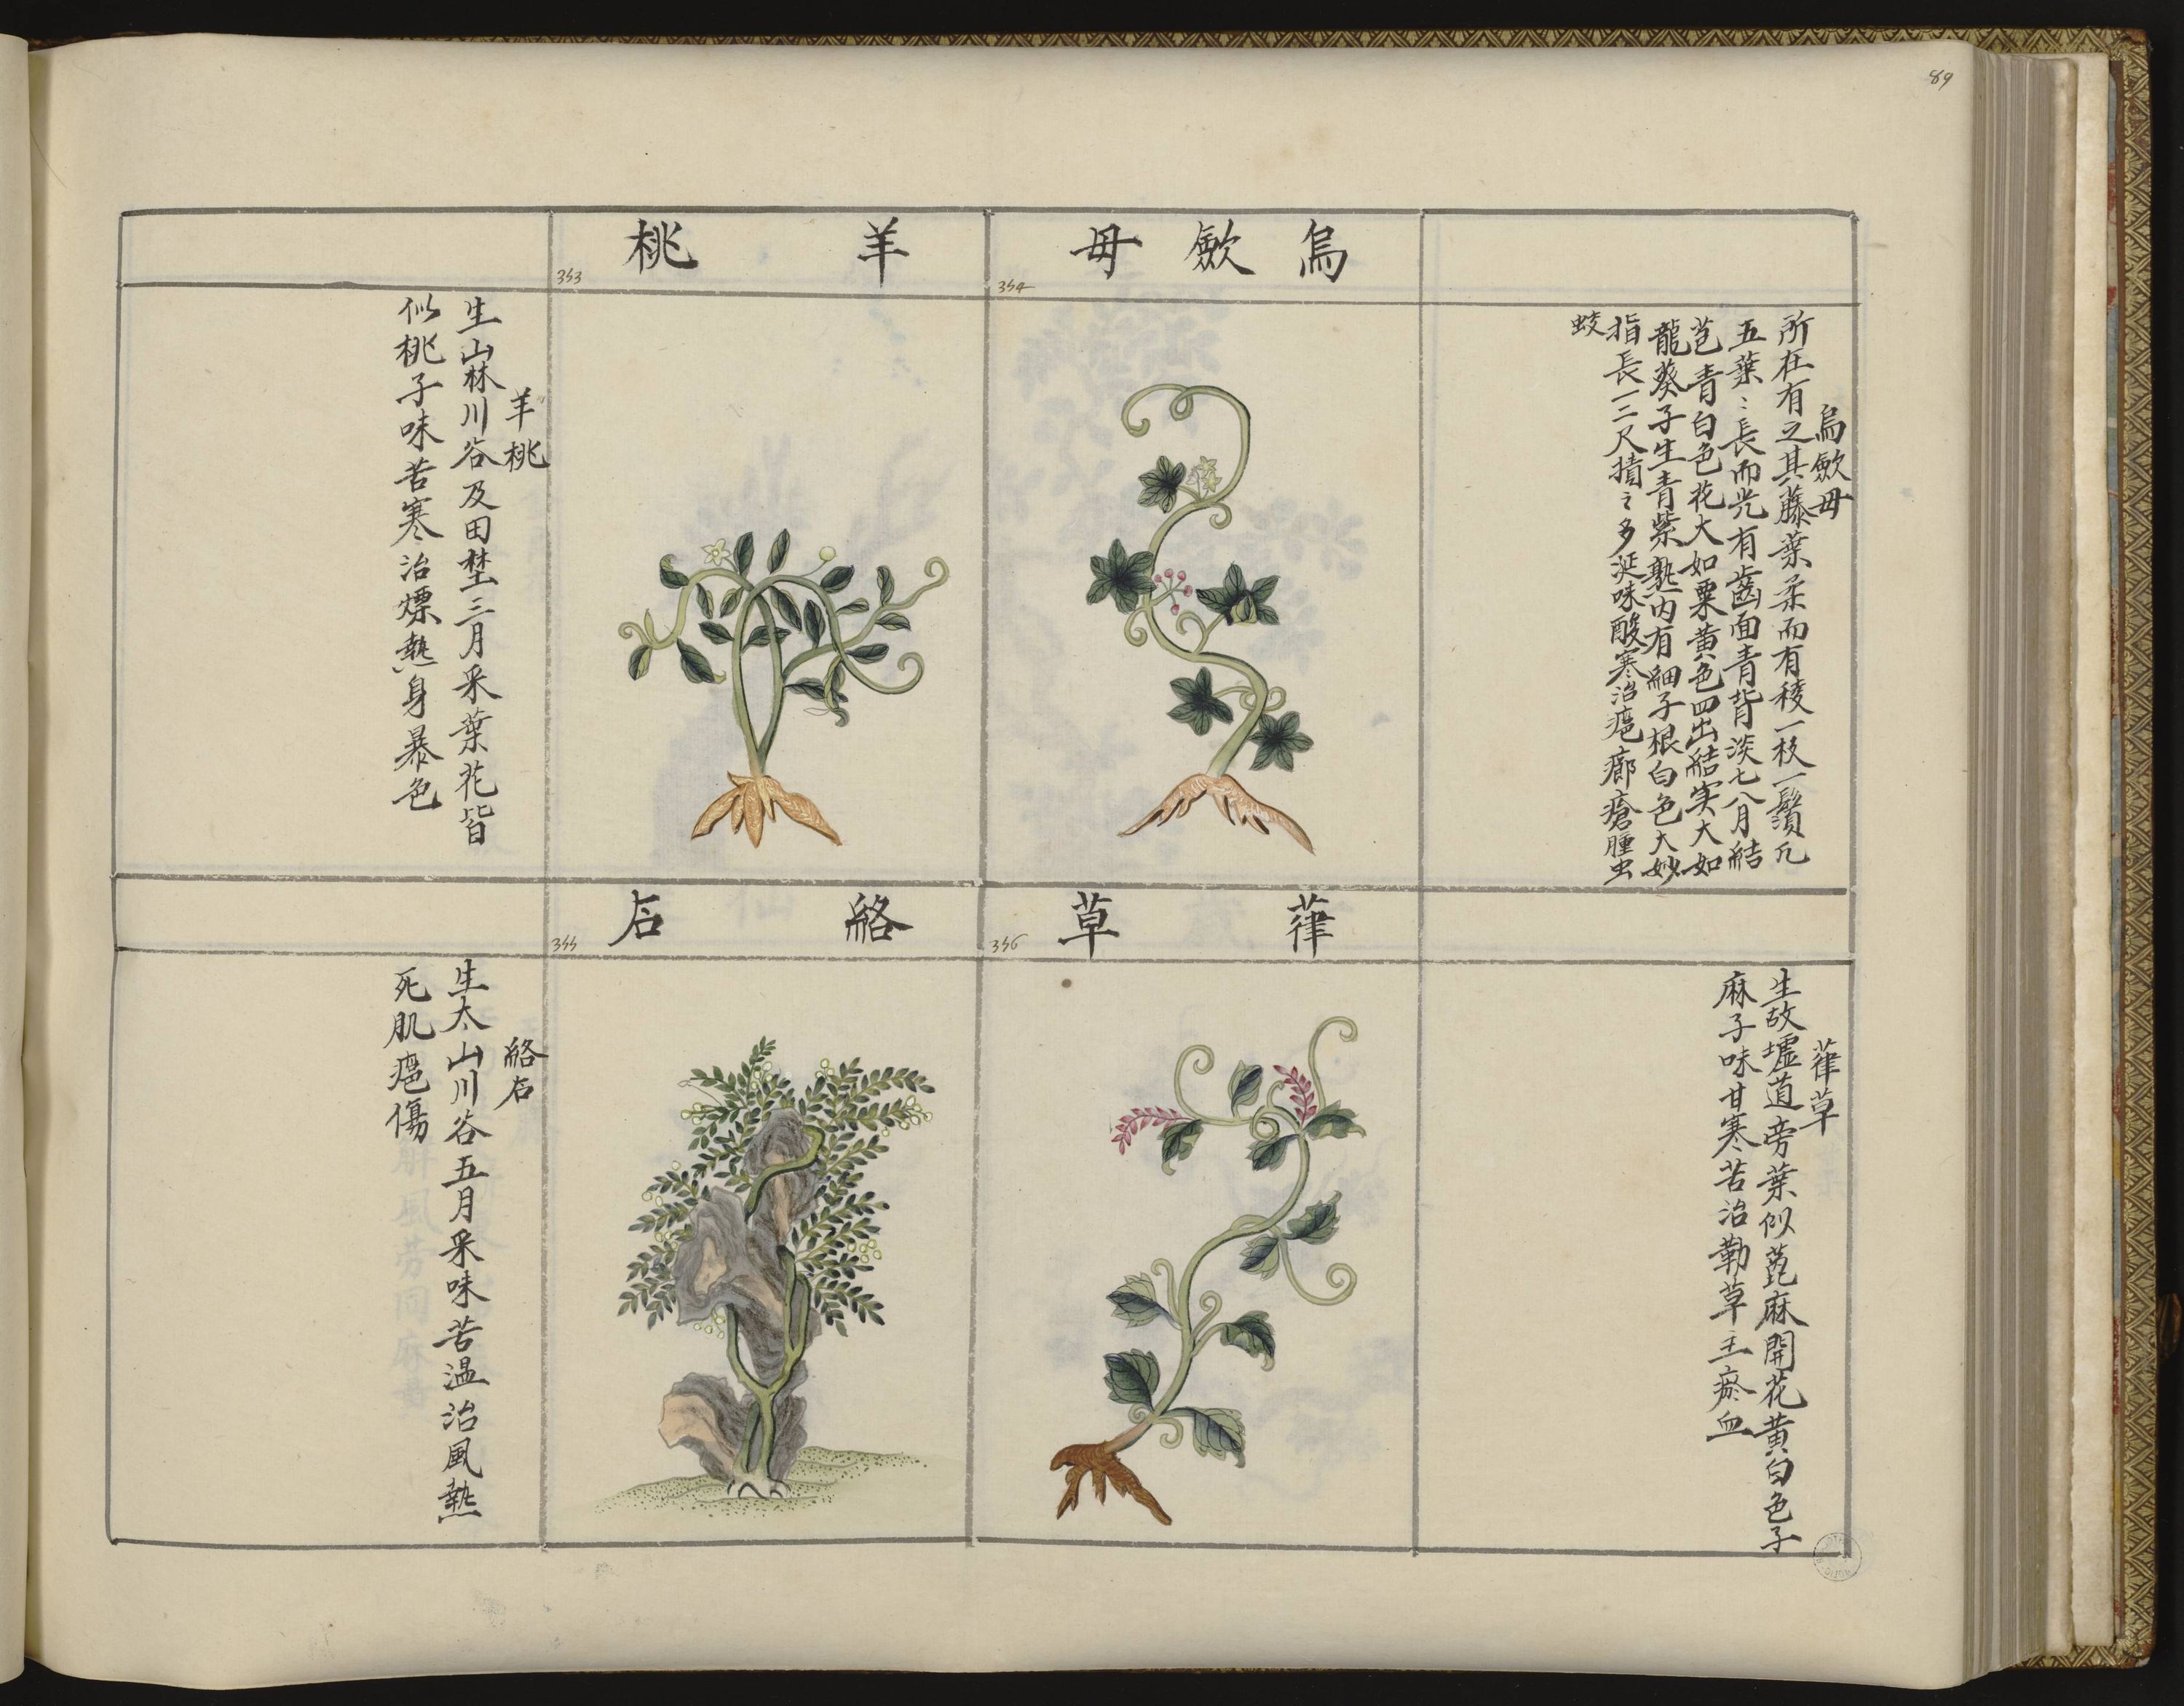 89
烏歛毋
354
烏歛毋
所在有之其藤葉柔而有稜一枝一鬚凡
五葉〻長而光有齒面青背淡七八月結
苞青白色花大如粟黄色四出結实大如
龍葵子生青紫熟内有細子根白色大妙
指長一二尺擣之多涎味酸寒治瘟癤瘡腫虫
蛟
羊桃
353
羊桃
生山林川谷及田埜三月采葉花皆
似桃子味苦寒治熛熱身暴色
葎草
356
葎草
生故墟道旁葉似萞麻開花黄白色子
麻子味甘寒苦治勒草主瘀血
絡石
355
絡石
生太山川谷五月采味苦温治風熱
死肌瘟傷